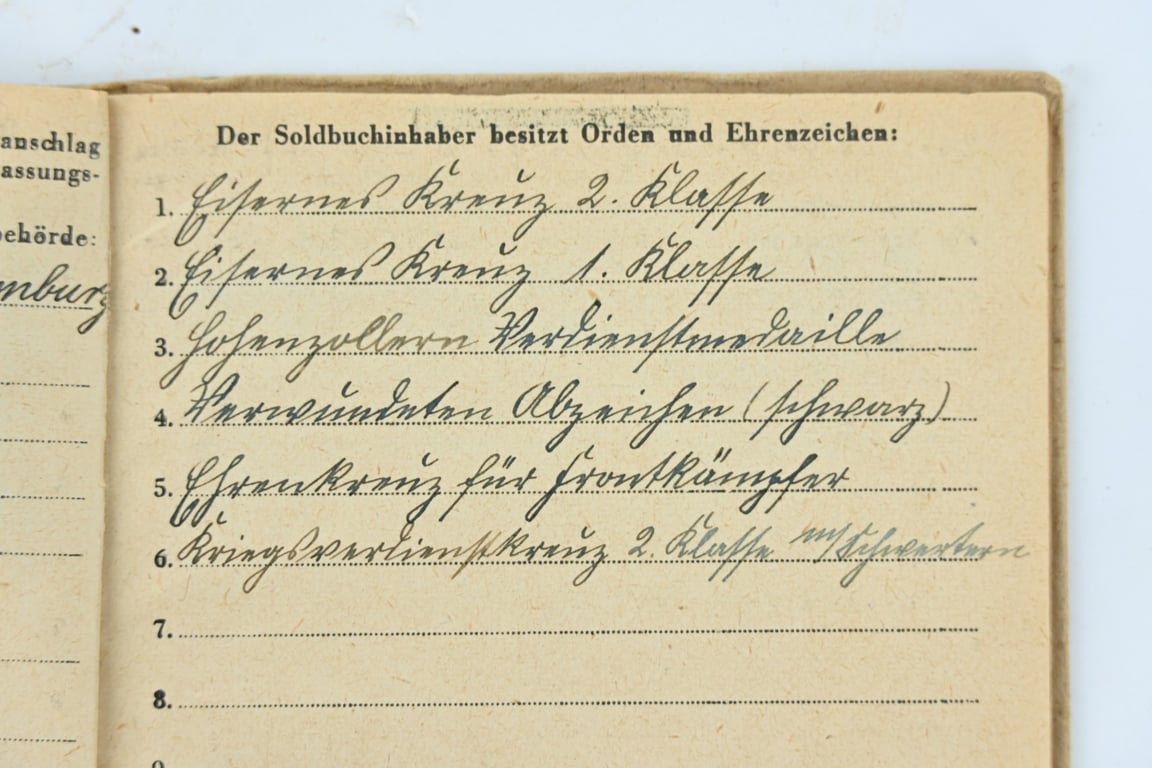 anschlag
assungs-
behörde:
mburg
Der Soldbuchinhaber besitzt Orden und Ehrenzeichen:
1. Eisernes Kreuz 2. Klasse
2. Eisernes Kreuz 1. Klasse
3. Hohenzollern Verdienstmedaille
4. Verwundeten Abzeichen (schwarz)
5. Ehrenkreuz für Frontkämpfer
6. Kriegsverdienstkreuz 2. Klasse m/Schwertern
7.
8.
9.